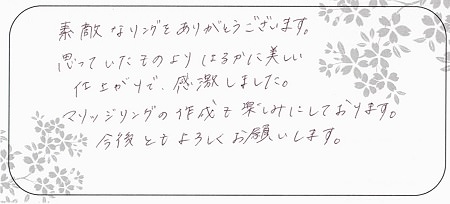 素敵なリングをありがとうございます。
思っていたものよりはるかに美しい
仕上がりで、感激しました。
マリッジリングの作成も楽しみにしております。
今後ともよろしくお願いします。